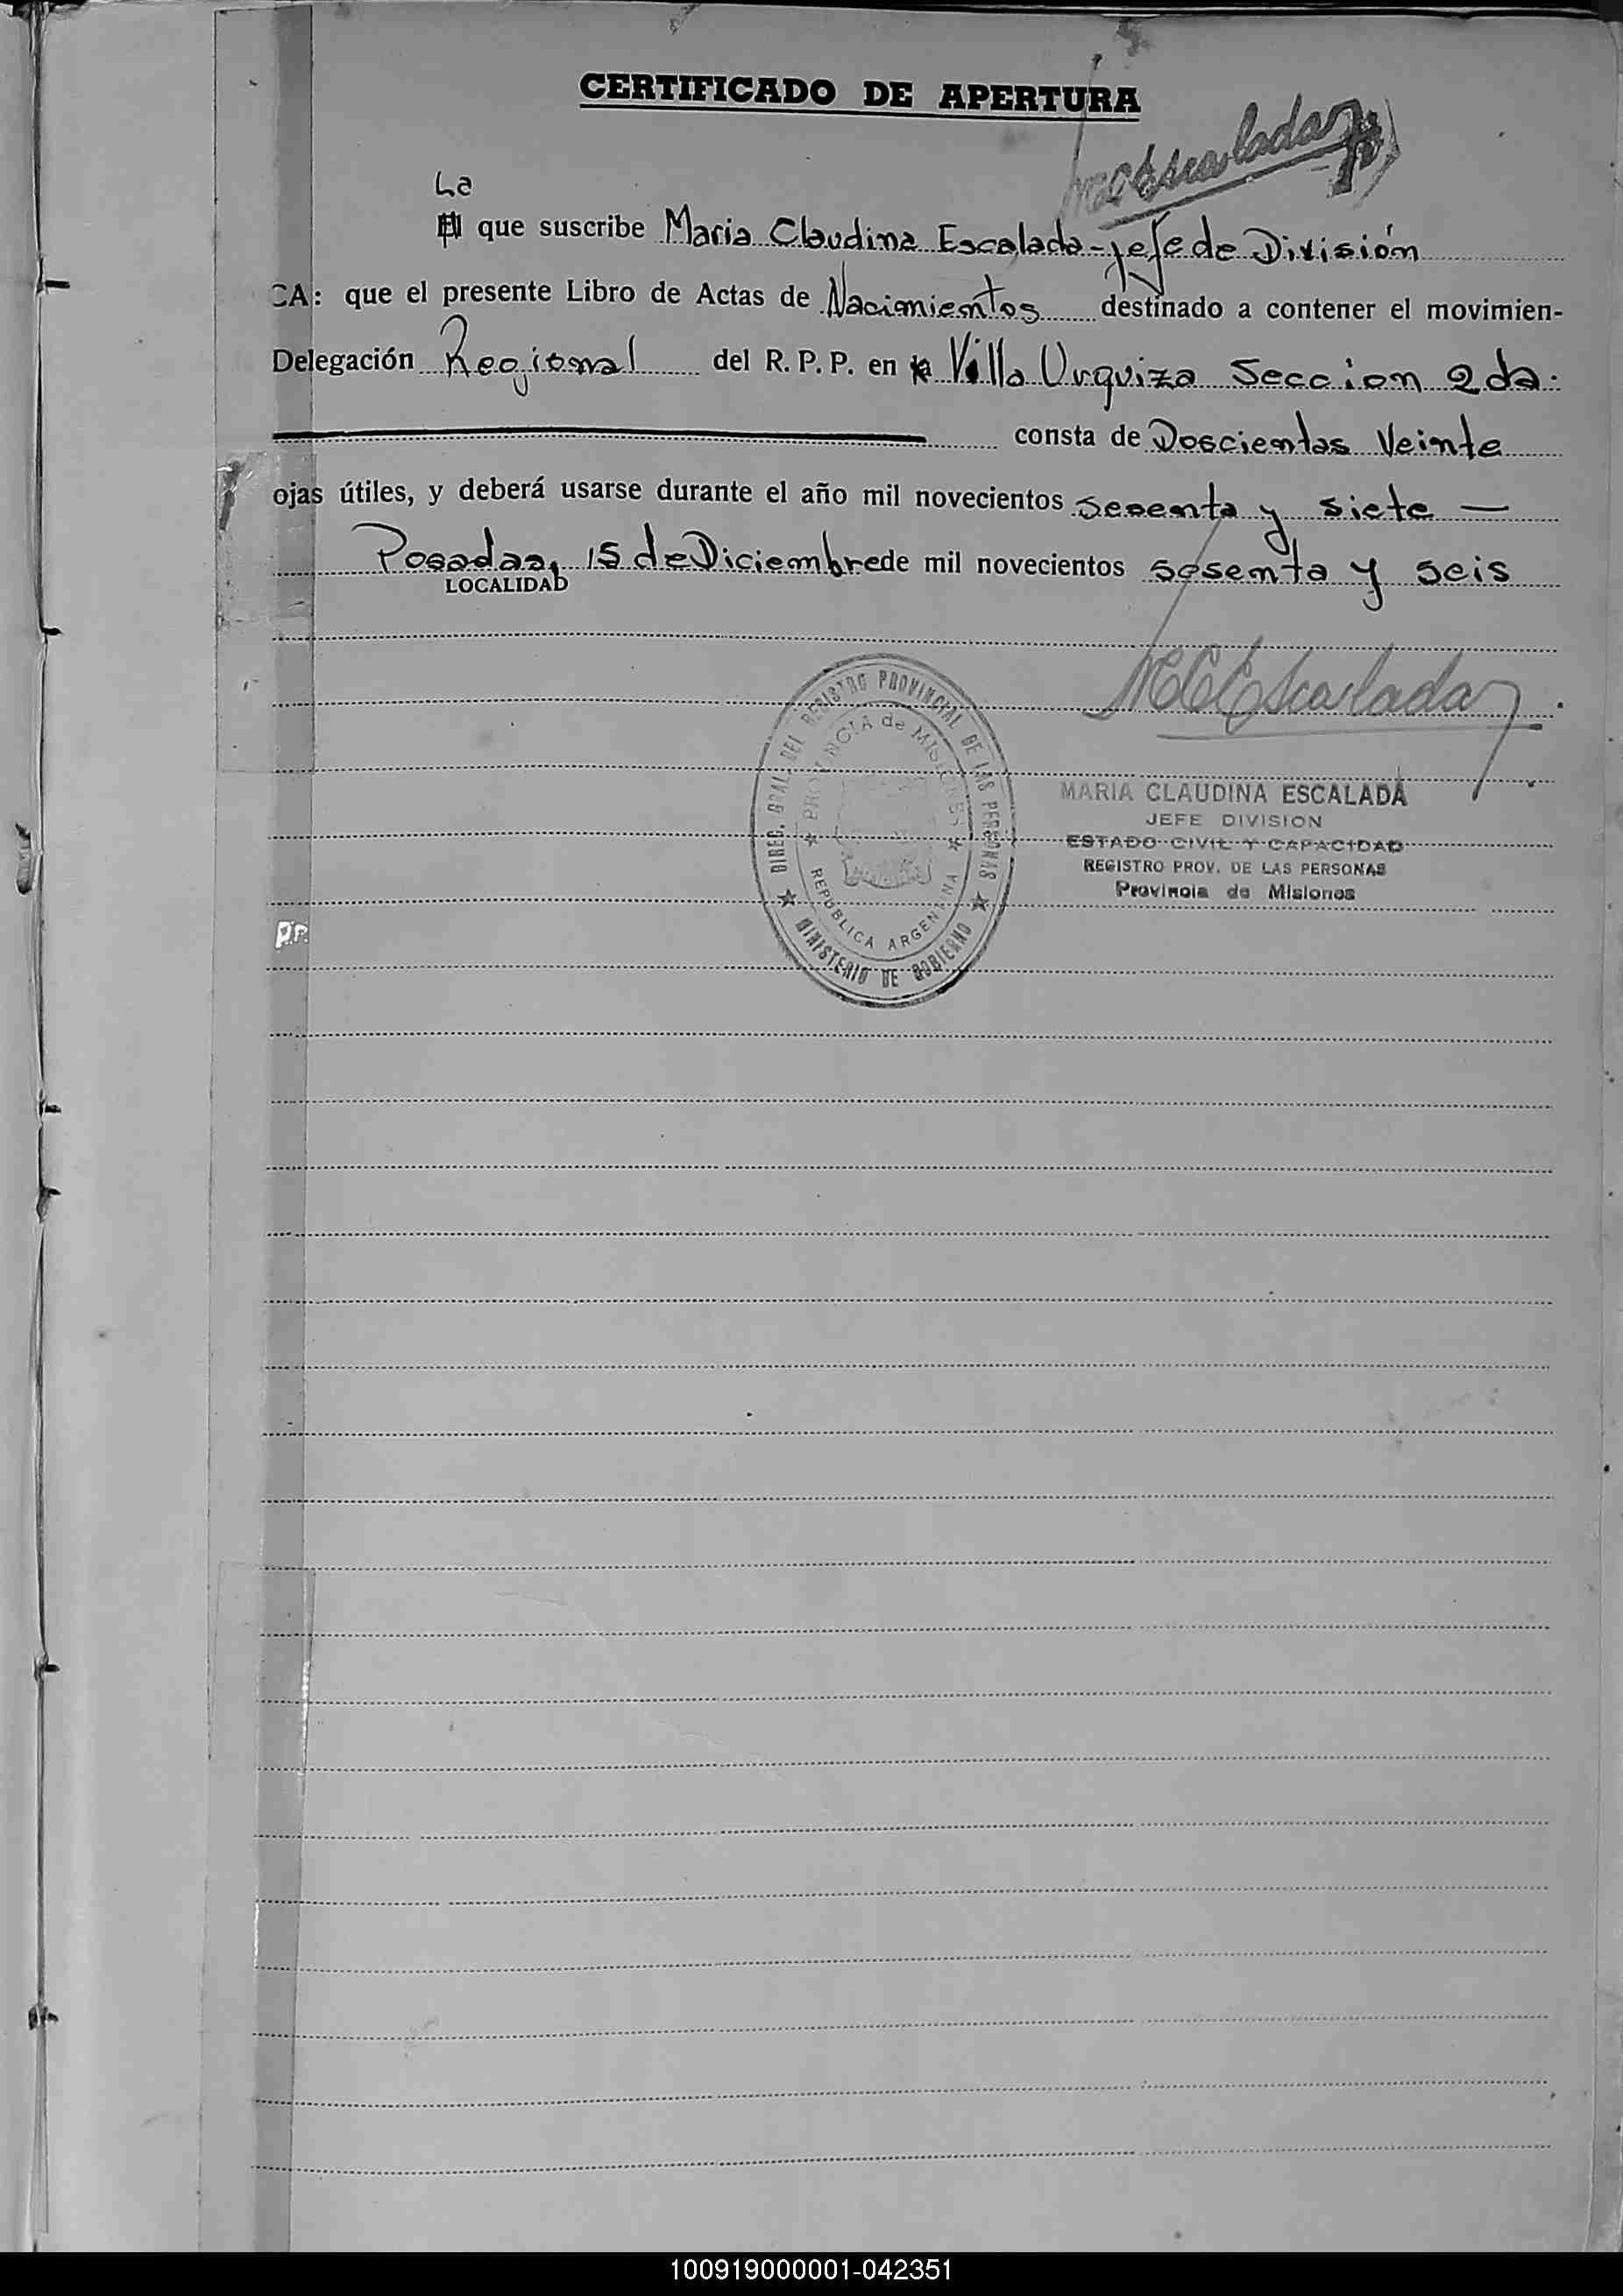 CERTIFICADO DE APERTURA
MCEscalada
La
El que suscribe Maria Claudina Escalada - Jefe de División
CA: que el presente Libro de Actas de Nacimientos destinado a contener el movimien-
Delegación Regional del R. P. P. en Villa Urquiza Seccion 2da.
consta de Doscientas Veinte
ojas útiles, y deberá usarse durante el año mil novecientos sesenta y siete —
Posadas, 15 de Diciembre de mil novecientos sesenta y seis
LOCALIDAD
MCEscalada
DIREC. GRAL. DEL REGISTRO PROVINCIAL DE LAS PERSONAS
PROVINCIA de MISIONES
REPUBLICA ARGENTINA
MINISTERIO DE GOBIERNO
MARIA CLAUDINA ESCALADA
JEFE DIVISION
ESTADO CIVIL Y CAPACIDAD
REGISTRO PROV. DE LAS PERSONAS
Provincia de Misiones
pr.
100919000001-042351